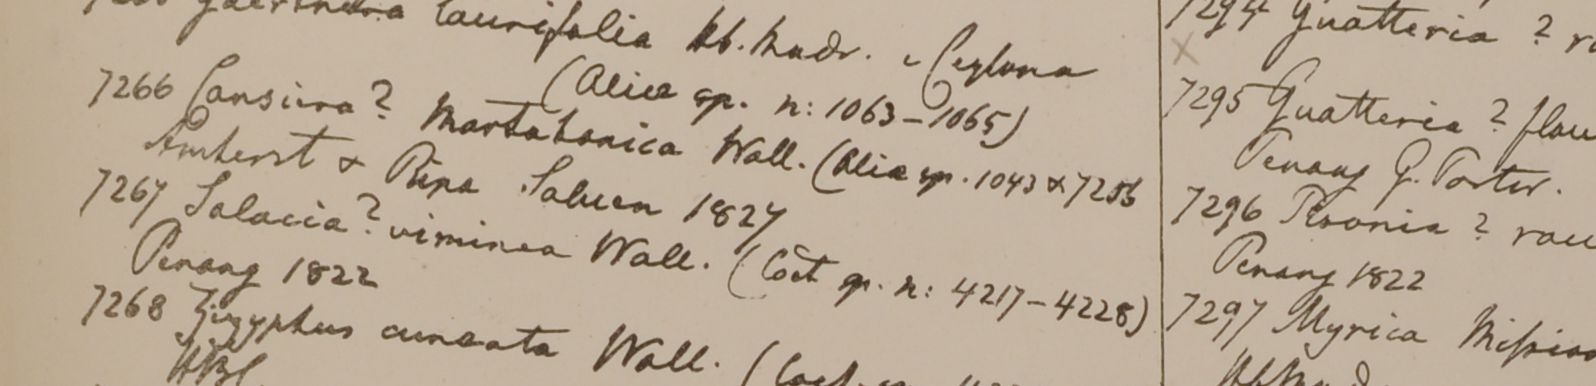 laurifolia Hb. Madr. e Ceylona
(Alice sp. n: 1063 – 1065)
7266 Cansiera? Martabanica Wall. (Alia sp. 1043 & 7256
Amherst & Ripa Saluen 1827
7267 Salacia? viminea Wall. (Cöet sp. n: 4217 – 4228)
Penang 1822
7268 Zizyphus cuneata Wall.
HBC
7294 Guatteria ?
7295 Guatteria ? flau
Penang G. Porter.
7296 ?
Penang 1822
7297 Myrica